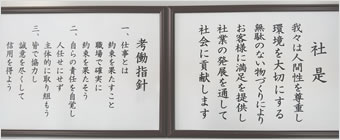 社是
我々は人間性を尊重し
環境を大切にする
無駄のない物づくりにより
お客様に満足を提供し
社業の発展を通して
社会に貢献します
考働指針
一、仕事とは
約束を果たすこと
職場で確実に
約束を果たそう
二、自らの責任を自覚し
人任せにせず
主体的に取り組もう
三、皆で協力し
誠意を尽くして
信用を得よう